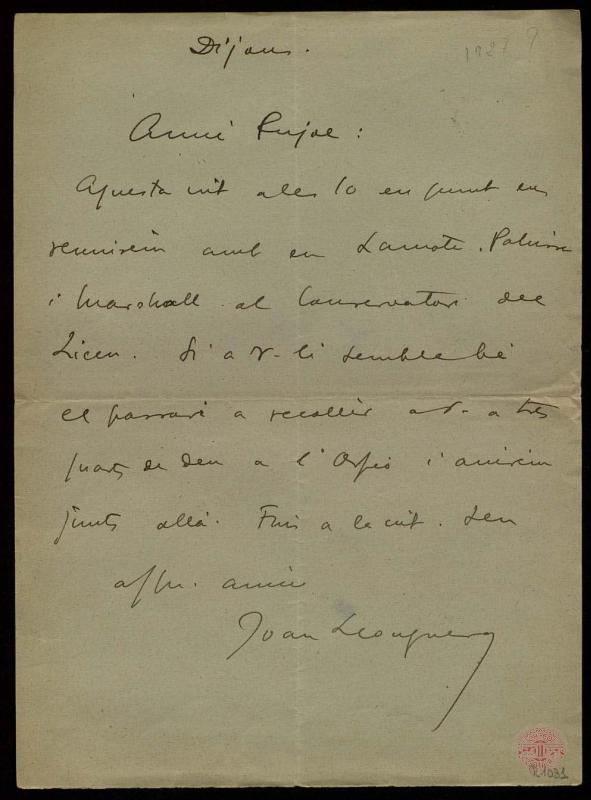 Dijous.
1927 9
Amic Pujol:
Aquesta nit a les 10 en punt ens
reunirem amb en Lamote, Pahissa
i Marshall al Conservatori del
Liceu. Si a V. li sembla bé
el passaré a recollir a V. a tres
quarts de deu a l'Orfeó i anirem
junts allà. Fins a la nit. Seu
affm. amic
Joan Llongueras
1031